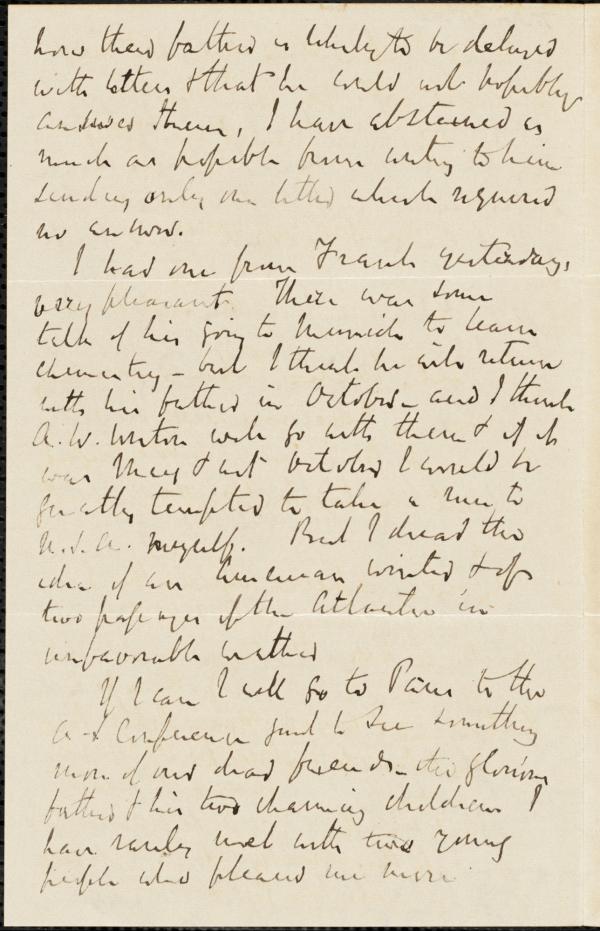 how their father is likely to be deluged
with letters & that he could not possibly
answer them, I have abstained as
much as possible from writing to him
sending only one letter which required
no answer.
I had one from Frank yesterday,
very pleasant. There was some
talk of his going to Munich to learn
chemistry - but I think he will return
with his father in October - and I think
A. W. will go with them & if it
was May & not October I would be
greatly tempted to take a run to
U.S.A. myself. But I dread the
idea of an American winter & of
two passages of the Atlantic in
unfavorable weather
If I can I will go to Paris to the
A-S Conference and to see something
more of our dead friends - the glorious
father & his two charming children I
have rarely met with two young
people who pleased me more